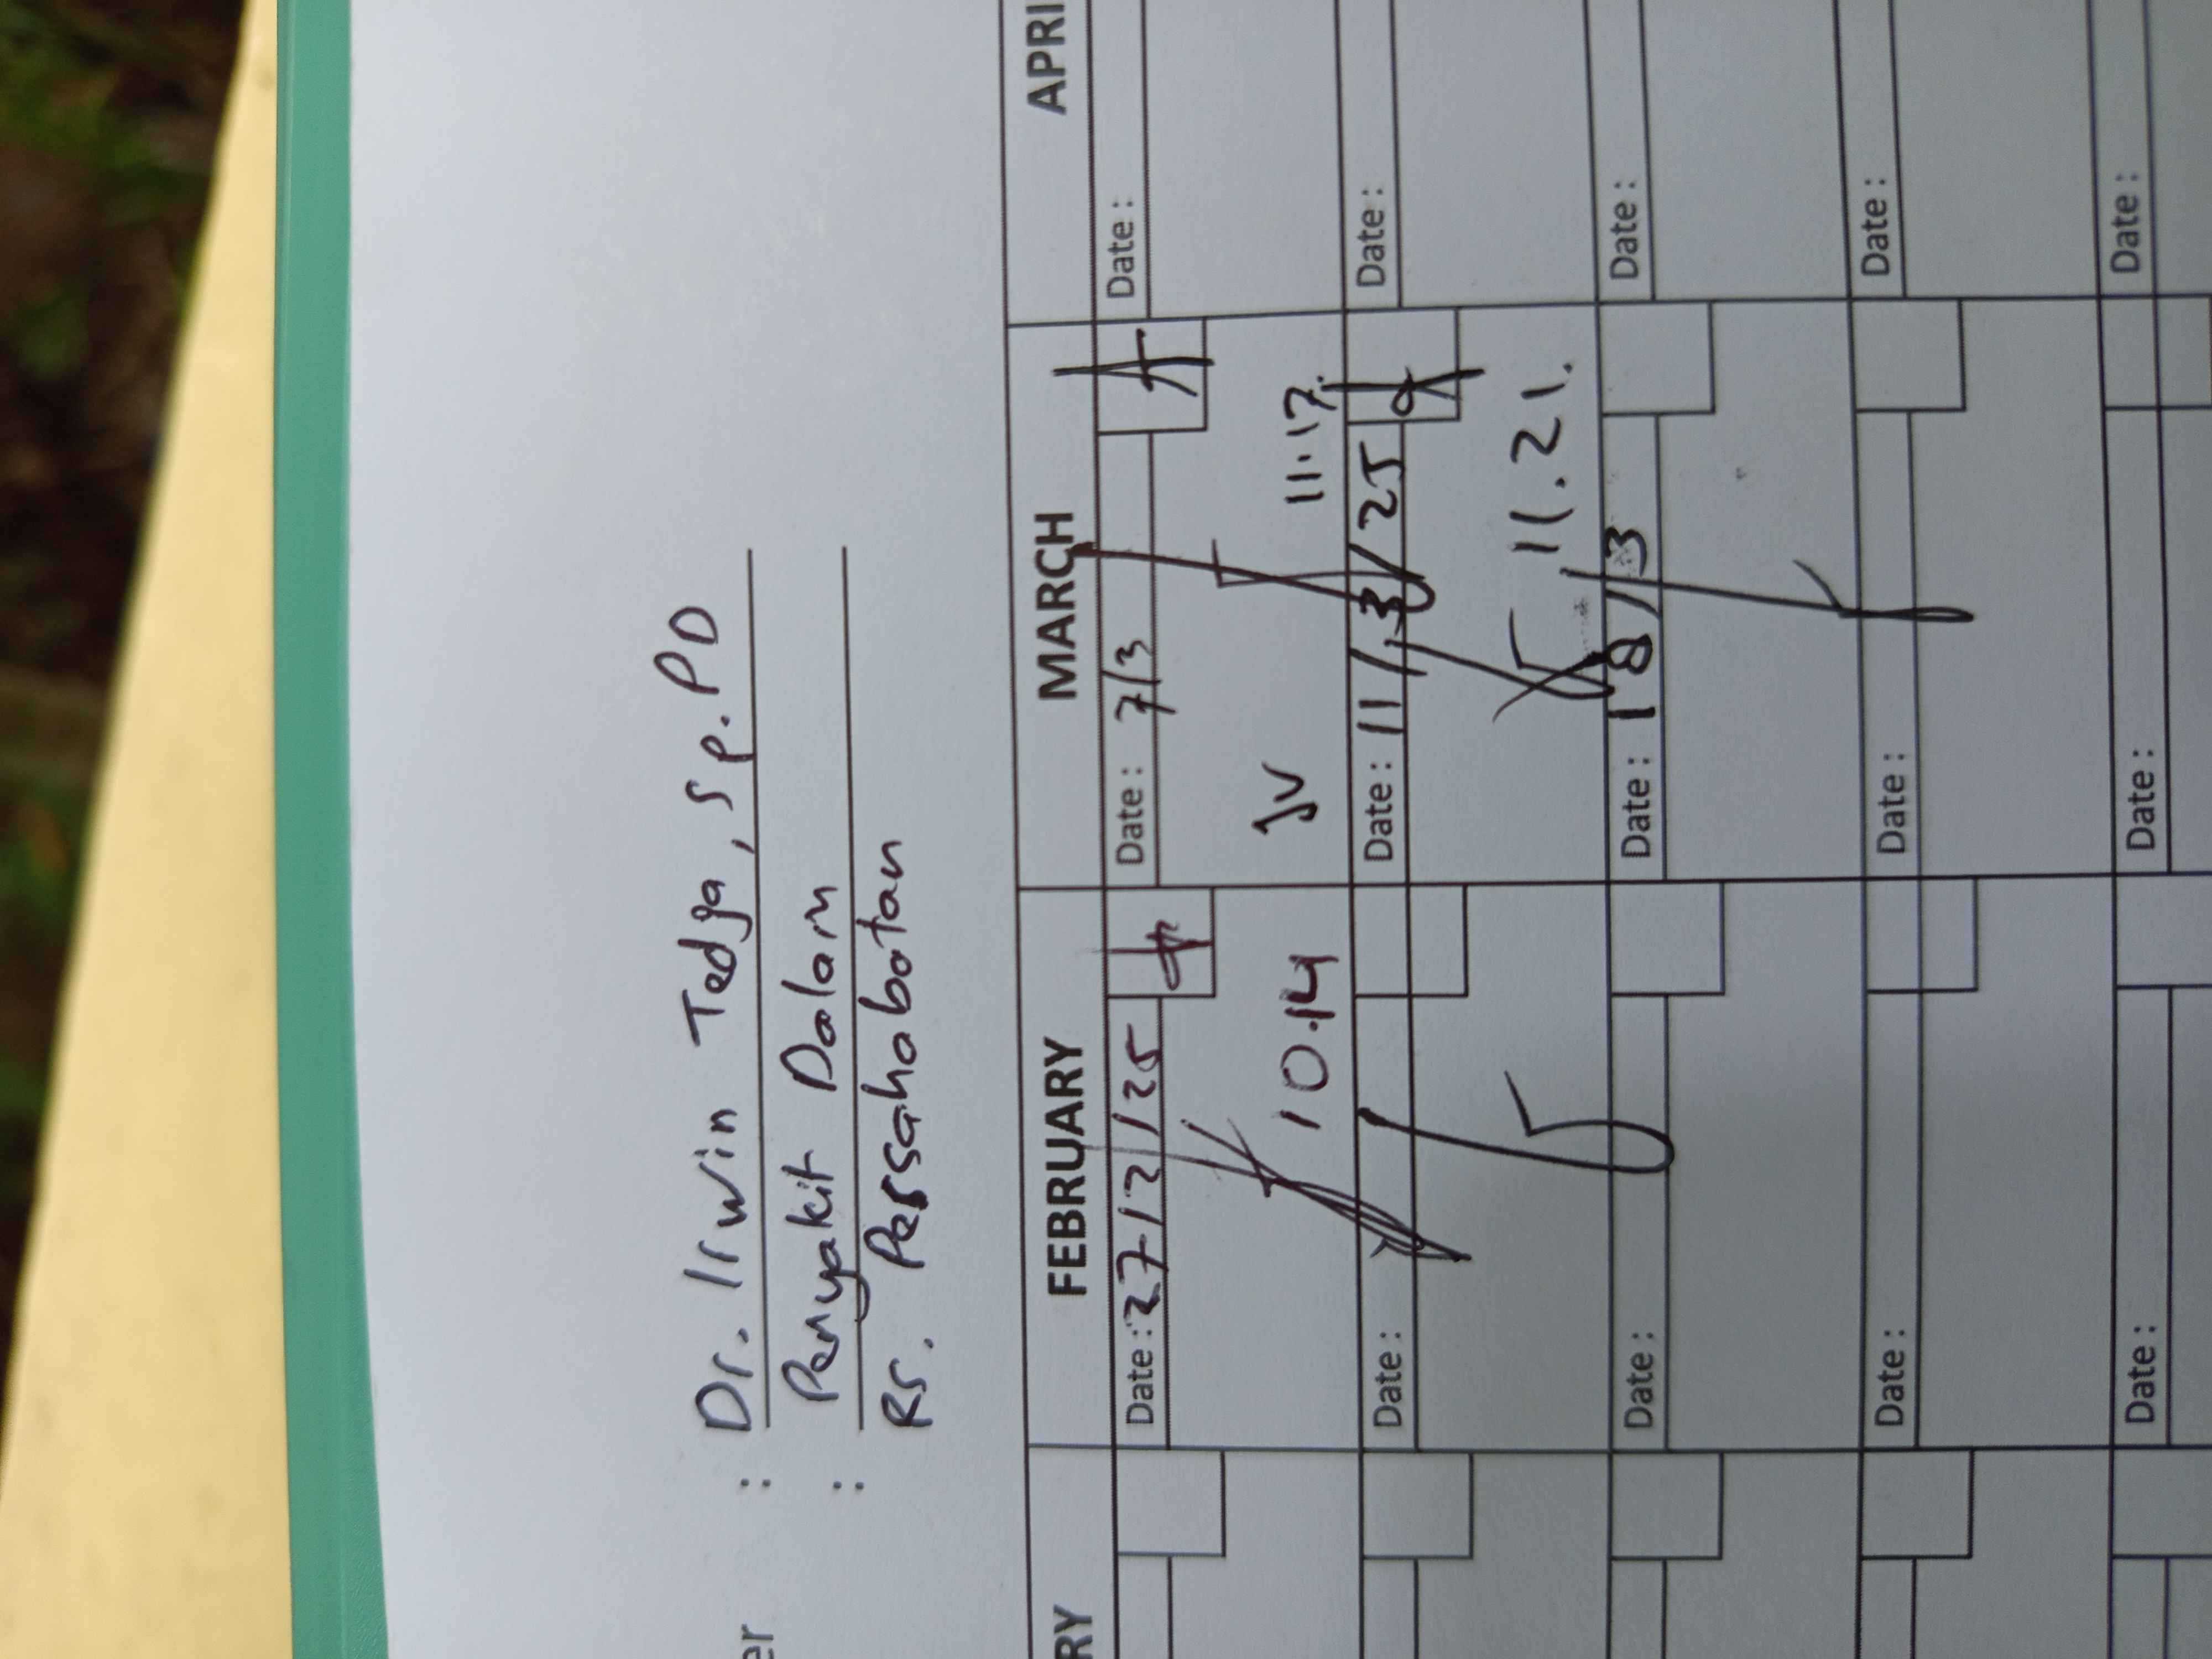 : Dr. Irwin Tedja, Sp.PD
: Penyakit Dalam
RS. Persahabatan
FEBRUARY MARCH APRI
Date: 27/2/25 Date: 7/3 Date:
10.14 JV 11.17.
Date: Date: 11/3/25 Date:
11.21.
Date: Date: 18/3 Date:
Date: Date: Date:
Date: Date: Date: